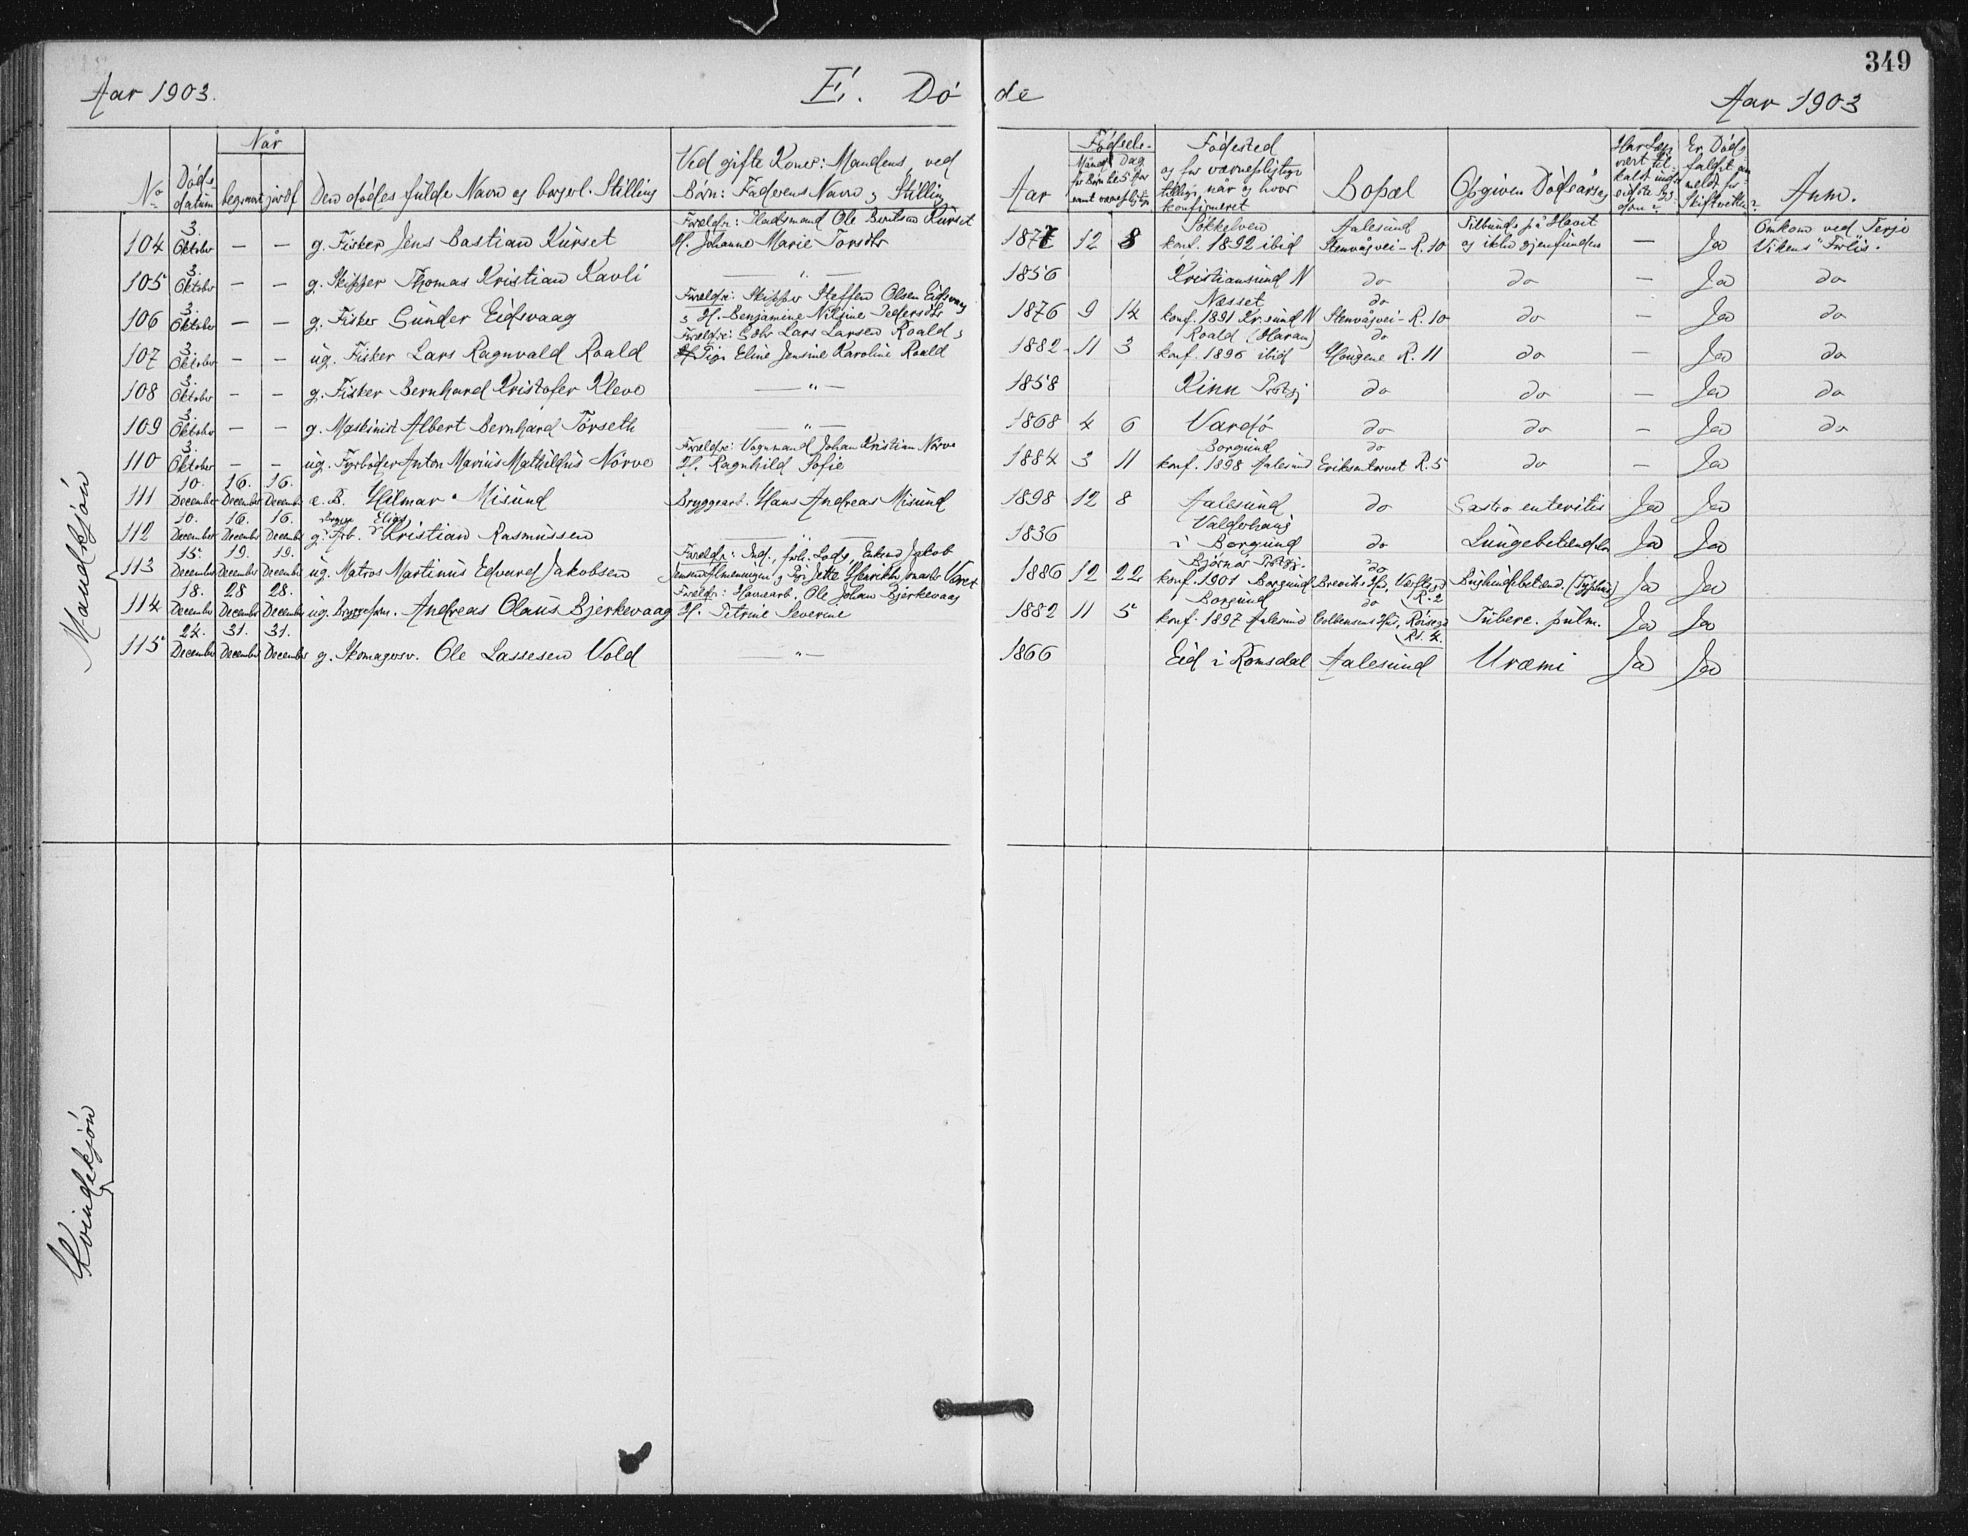 349
Aar 1903. E. Dö de Aar 1903
Når
No Döds datum begravet jordf. Den dödes fulde Navn og borgerl. Stilling Ved gifte Koner: Mandens, ved Börn: Faderens Navn og Stilling
Aar Födsels- Måned Dag for Börn till 5 Aar samt værnepligtige Födested og for værnepligtige tillige når og hvor konfirmeret Bopæl Opgiven Dödsårsag Er Dödsfaldet anmeldt for Skifteretten? Anm.
Mandkjön
104 3. Oktober — — g. Fisker Jens Bastian Kurset Forældre: Pladsmand Ole Berntsen Kurset H. Johanne Marie Torsdtr 1877 12 8 Søkkelven konf. 1892 ibid Aalesund Stenvågvei - R. 10 Tilbunds på Havet og ikke gjenfunden — Ja Omkom ved Terje Vikens "Forlis".
105 3. Oktober — — g. Skipper Thomas Kristian Kavli — " — 1856 Kristiansund N do do — Ja do
106 3. Oktober — — g. Fisker Gunder Eidsvaag Forældre: Skipper Steffen Olsen Eidsvaag og H. Benjamine Nilsine Pedersdtr 1876 9 14 Næsset konf. 1891 Kr.sund N do Stenvågvei - R. 10 do — Ja do
107 3. Oktober — — ug. Fisker Lars Ragnvald Roald Forældre: Gbr Lars Larsen Roald og Pige Eline Jensine Karoline Roald 1882 11 3 Roald (Haram) konf. 1896 ibid do Haugene R. 11 do — Ja do
108 3. Oktober — — g. Fisker Bernhard Kristofer Kleve — " — 1858 Kinn Prstgj do do — Ja do
109 3. Oktober — — g. Maskinist Albert Bernhard Törseth — " — 1868 4 6 Vardö do do — Ja do
110 3. Oktober — — ug. Fyrböder Anton Marius Mathildus Nörve Forældre: Vognmand Johan Kristian Nörve H. Ragnhild Sofie 1884 3 11 Borgund konf. 1898 Aalesund do Erikentorvet R. 5 do — Ja
111 10. December 16. December 16. December æ. B. Hilmar Misund Bryggearb. Hans Andreas Misund 1898 12 8 Aalesund do Gastro enteritis Ja Ja
112 10. December 16. December 16. December g. Arb. Elias Kristian Rasmussen — " — 1836 Valderhaug i Borgund do Lungebetændelse Ja Ja
113 15. December 19. December 19. December ug. Matros Martinus Edvard Jakobsen Forældre: Ind., forh. Lods, Enkemd Jakob Jensen Almenningen og Pige Jette Henrikke Jonasdtr Været 1886 12 22 Björnör Prstgj. konf. 1901 Borgund do Brevikshs, Værftsgd R. 2 Bughindebetænd. (Typhus) Ja Ja
114 18. December 28 December 28. December ug. Bryggeform. Andreas Olaus Bjerkevaag Forældre: Havnearb. Ole Johan Bjerkevaag H. Petrine Severine 1882 11 5 Borgund konf. 1897 Aalesund do Rd. 4. Tuberc. pulm. Ja Ja
115 24. December 31. December 31. December g. Skomagersv. Ole Lassesen Vold — " — 1866 Eid i Romsdal Aalesund Uræmi Ja Ja
Kvindekjön